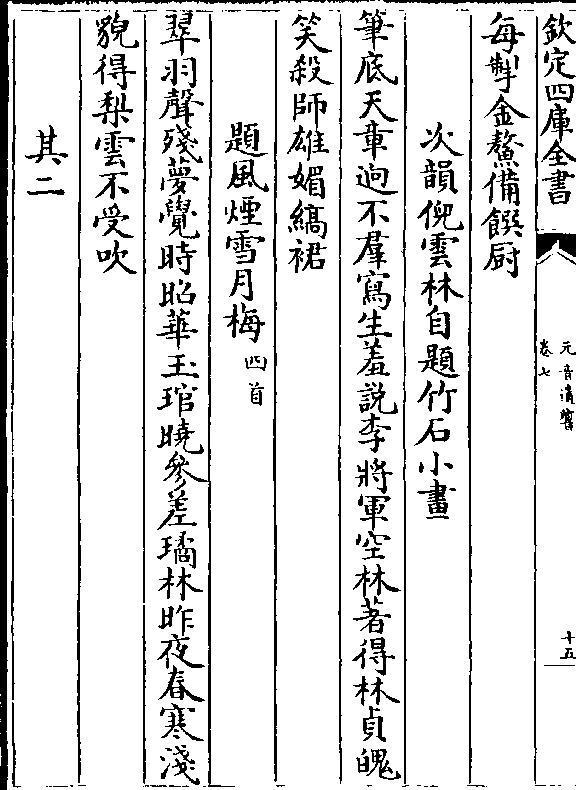 欽定四庫全書
元音遺響
卷七
十五
每掣金鰲備饌厨
次韻倪雲林自題竹石小畫
筆底天章迥不羣寫生羞說李將軍空林著得林貞魄
笑殺師雄媚縞裙
題風煙雪月梅四首
翠羽聲殘夢覺時昭華玉琯曉參差璚林昨夜春寒淺
貌得梨雲不受吹
其二